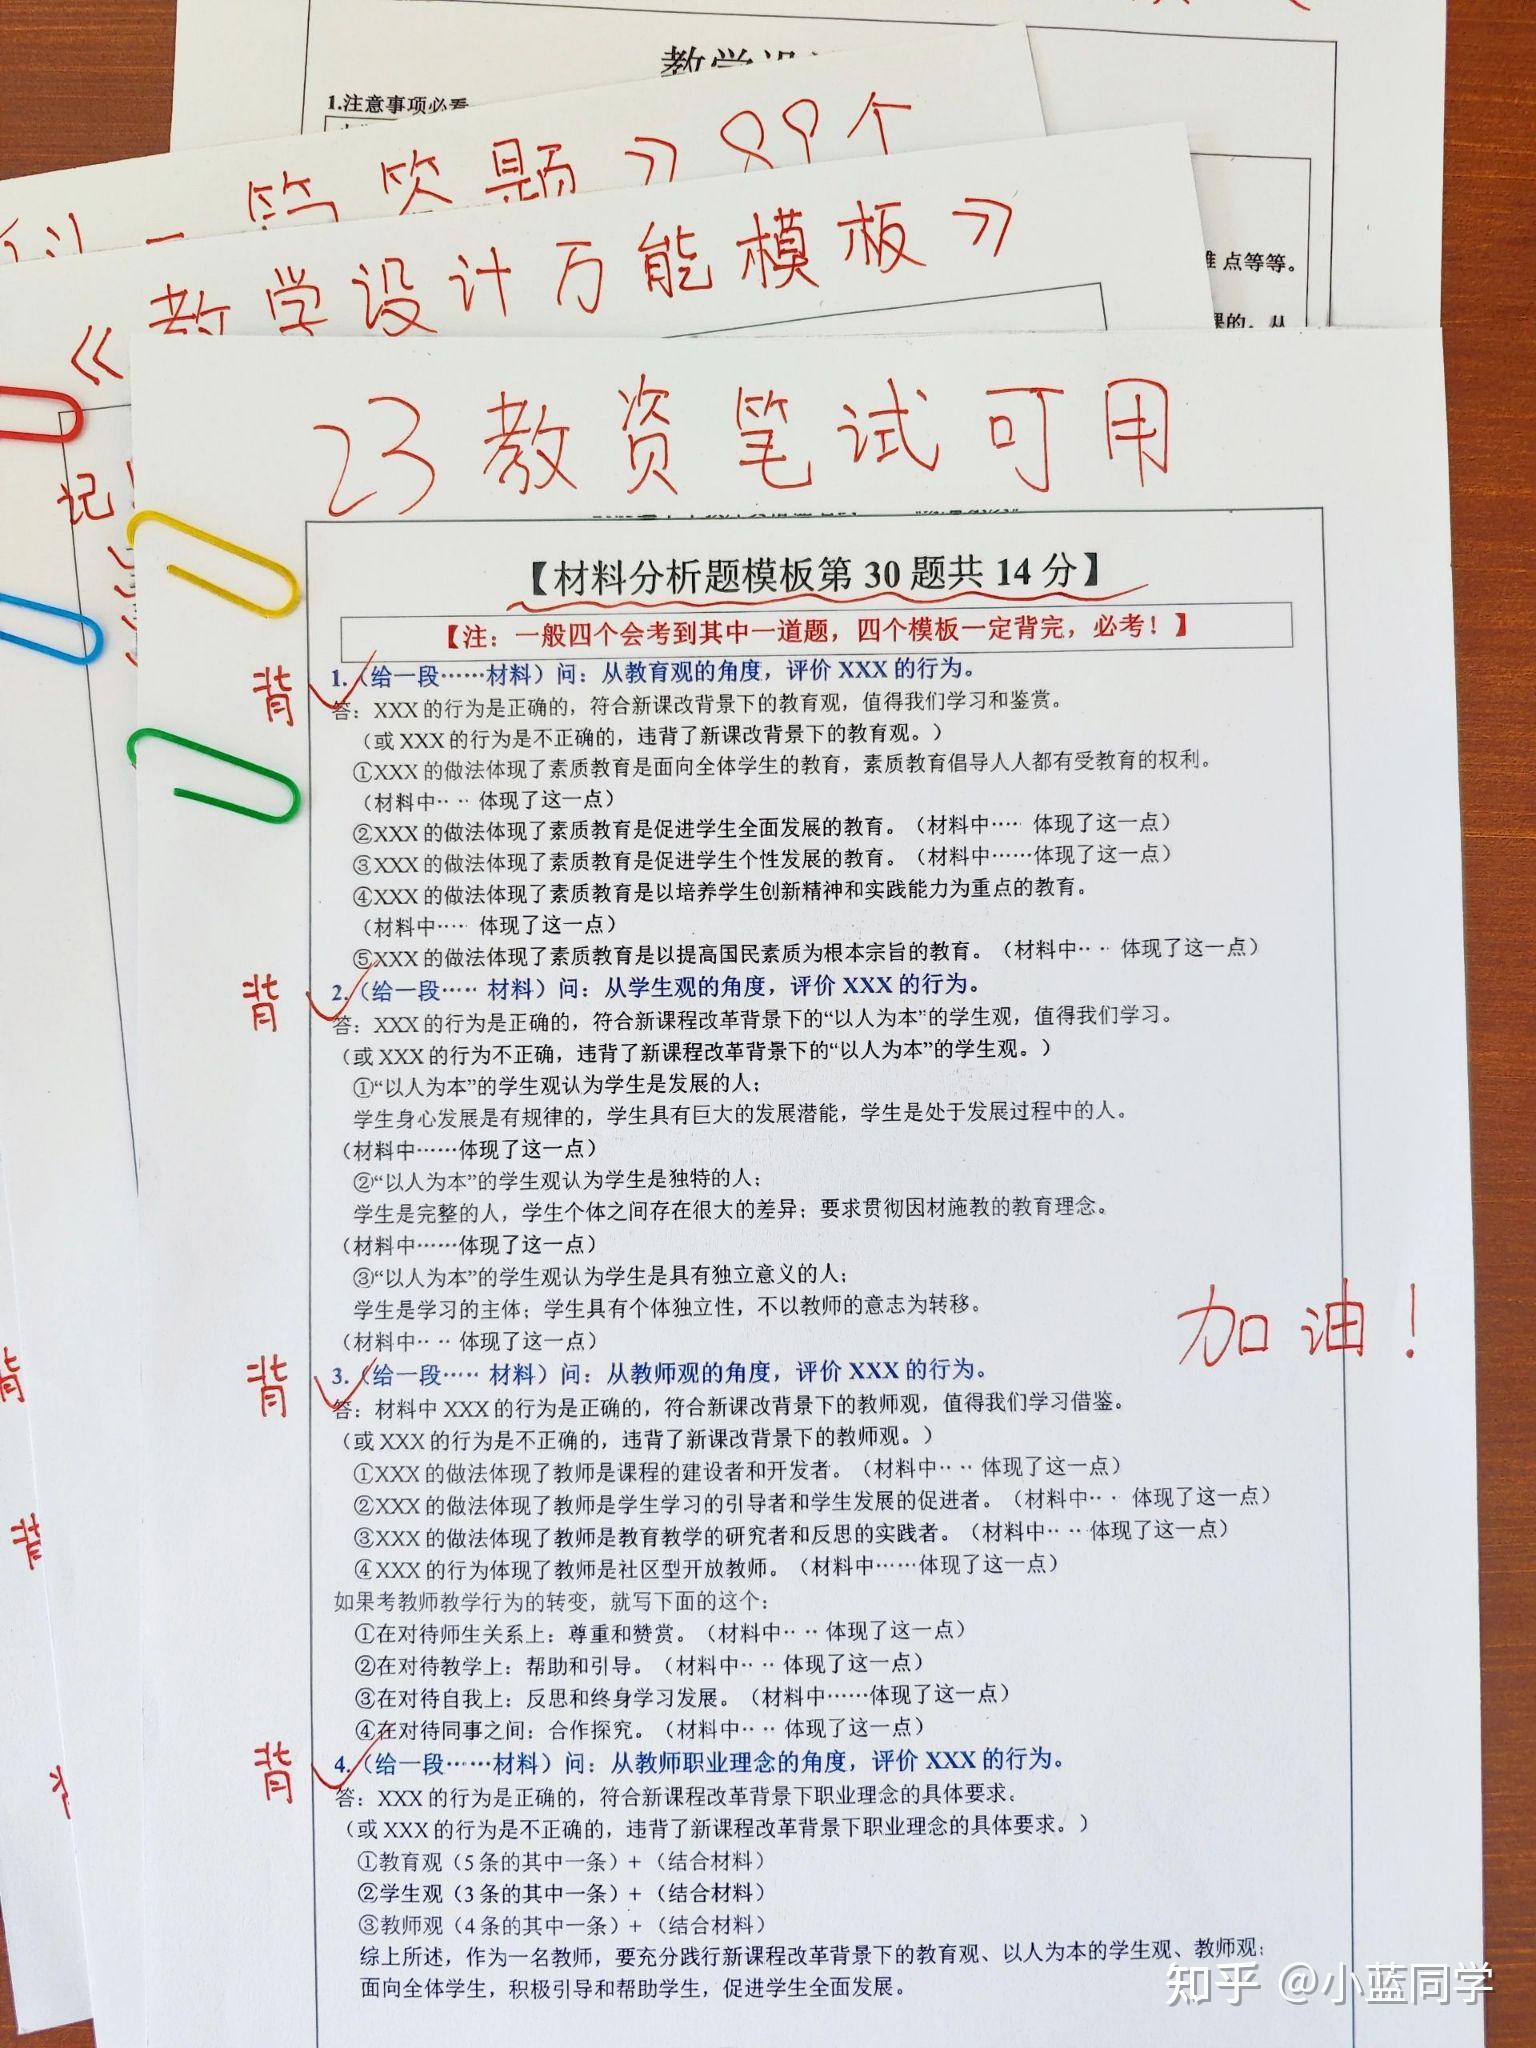 教学设
1.注意事项必看
答题》89个
难点等等。
课的。从
《教学设计万能模板》
记!
23教资笔试可用
【材料分析题模板第30题共14分】
【注：一般四个会考到其中一道题，四个模板一定背完，必考！】
背
1.（给一段……材料）问：从教育观的角度，评价XXX的行为。
答：XXX的行为是正确的，符合新课改背景下的教育观，值得我们学习和鉴赏。
（或XXX的行为是不正确的，违背了新课改背景下的教育观。）
①XXX的做法体现了素质教育是面向全体学生的教育，素质教育倡导人人都有受教育的权利。
（材料中·· ··体现了这一点）
②XXX的做法体现了素质教育是促进学生全面发展的教育。（材料中····· 体现了这一点）
③XXX的做法体现了素质教育是促进学生个性发展的教育。（材料中……体现了这一点）
④XXX的做法体现了素质教育是以培养学生创新精神和实践能力为重点的教育。
（材料中····· 体现了这一点）
⑤XXX的做法体现了素质教育是以提高国民素质为根本宗旨的教育。（材料中·· · 体现了这一点）
背
2.（给一段····· 材料）问：从学生观的角度，评价XXX的行为。
答：XXX的行为是正确的，符合新课程改革背景下的“以人为本”的学生观，值得我们学习。
（或XXX的行为不正确，违背了新课程改革背景下的“以人为本”的学生观。）
①“以人为本”的学生观认为学生是发展的人；
学生身心发展是有规律的，学生具有巨大的发展潜能，学生是处于发展过程中的人。
（材料中……体现了这一点）
②“以人为本”的学生观认为学生是独特的人；
学生是完整的人，学生个体之间存在很大的差异；要求贯彻因材施教的教育理念。
（材料中……体现了这一点）
③“以人为本”的学生观认为学生是具有独立意义的人；
学生是学习的主体；学生具有个体独立性，不以教师的意志为转移。
（材料中·· ·· 体现了这一点）
加油！
背
3.（给一段····· 材料）问：从教师观的角度，评价XXX的行为。
答：材料中XXX的行为是正确的，符合新课改背景下的教师观，值得我们学习借鉴。
（或XXX的行为是不正确的，违背了新课改背景下的教师观。）
①XXX的做法体现了教师是课程的建设者和开发者。（材料中·· ·· 体现了这一点）
②XXX的做法体现了教师是学生学习的引导者和学生发展的促进者。（材料中·· · 体现了这一点）
③XXX的做法体现了教师是教育教学的研究者和反思的实践者。（材料中·· ··体现了这一点）
④XXX的行为体现了教师是社区型开放教师。（材料中……体现了这一点）
如果考教师教学行为的转变，就写下面的这个：
①在对待师生关系上：尊重和赞赏。（材料中·· ·· 体现了这一点）
②在对待教学上：帮助和引导。（材料中·· ·· 体现了这一点）
③在对待自我上：反思和终身学习发展。（材料中……体现了这一点）
④在对待同事之间：合作探究。（材料中·· ·· 体现了这一点）
背
4.（给一段……材料）问：从教师职业理念的角度，评价XXX的行为。
答：XXX的行为是正确的，符合新课程改革背景下职业理念的具体要求。
（或XXX的行为是不正确的，违背了新课程改革背景下职业理念的具体要求。）
①教育观（5条的其中一条）+（结合材料）
②学生观（3条的其中一条）+（结合材料）
③教师观（4条的其中一条）+（结合材料）
综上所述，作为一名教师，要充分践行新课程改革背景下的教育观、以人为本的学生观、教师观；
面向全体学生，积极引导和帮助学生，促进学生全面发展。
背
背
知乎 @小蓝同学